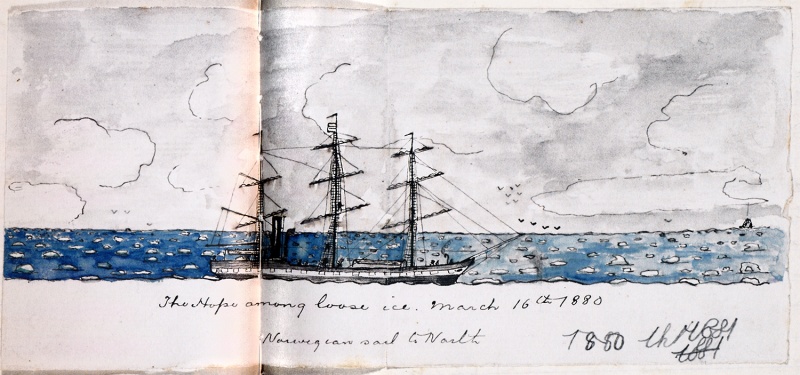 The Hope among loose ice. March 16th 1880
Norwegian sail to North
1880